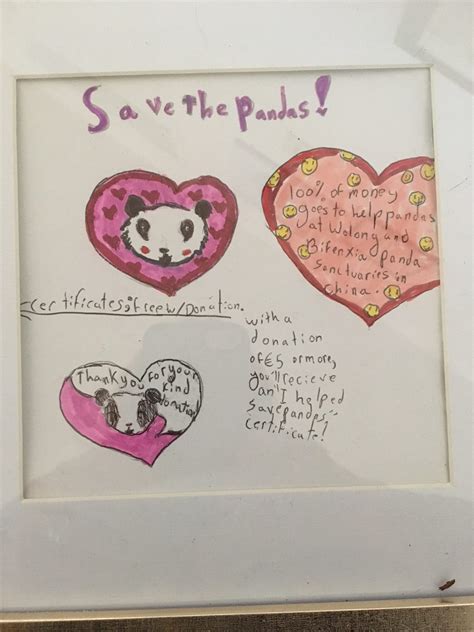 Save the pandas!
100% of money
goes to help pandas
at Wolong and
Bifenxia panda
sanctuaries in
china.
certificates; free w/Donation.
with a
donation
of €5 or more,
you'll recieve
an "I helped
save pandas"
certificate!
Thank you for your
kind
donation